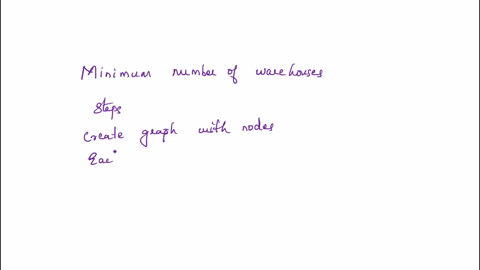 Minimum number of warehouses
Steps
Create graph with nodes
Eac